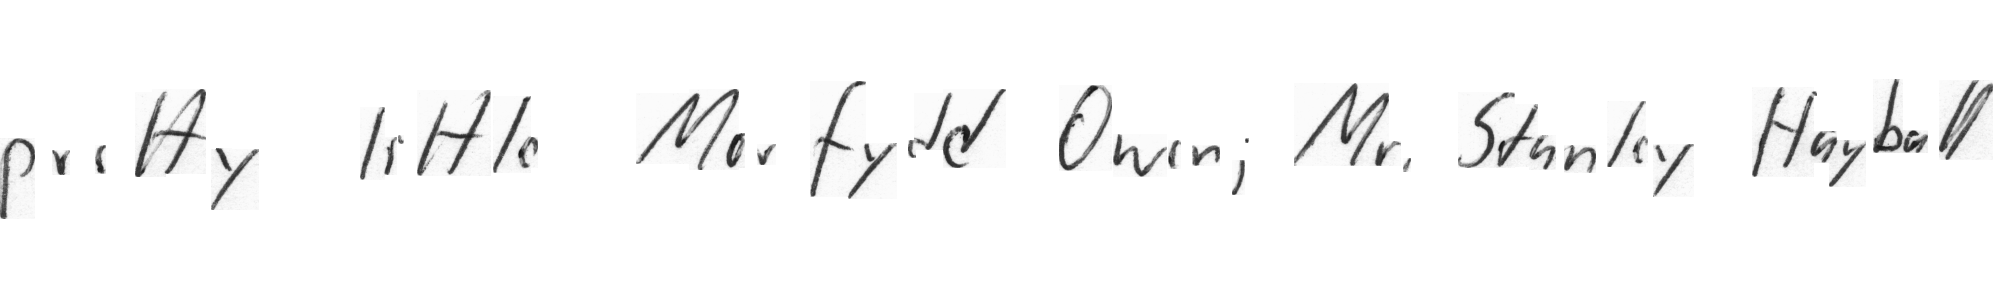 pretty little Morfydd Owen; Mr. Stanley Hayball